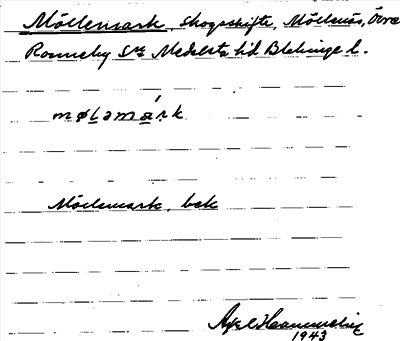 Möllemark, skogsskifte, Möllenäs, Övre
Ronneby Sn Medelsta hd Blekinge l.
møləmárk
Möllemark, bek
Axel
1943